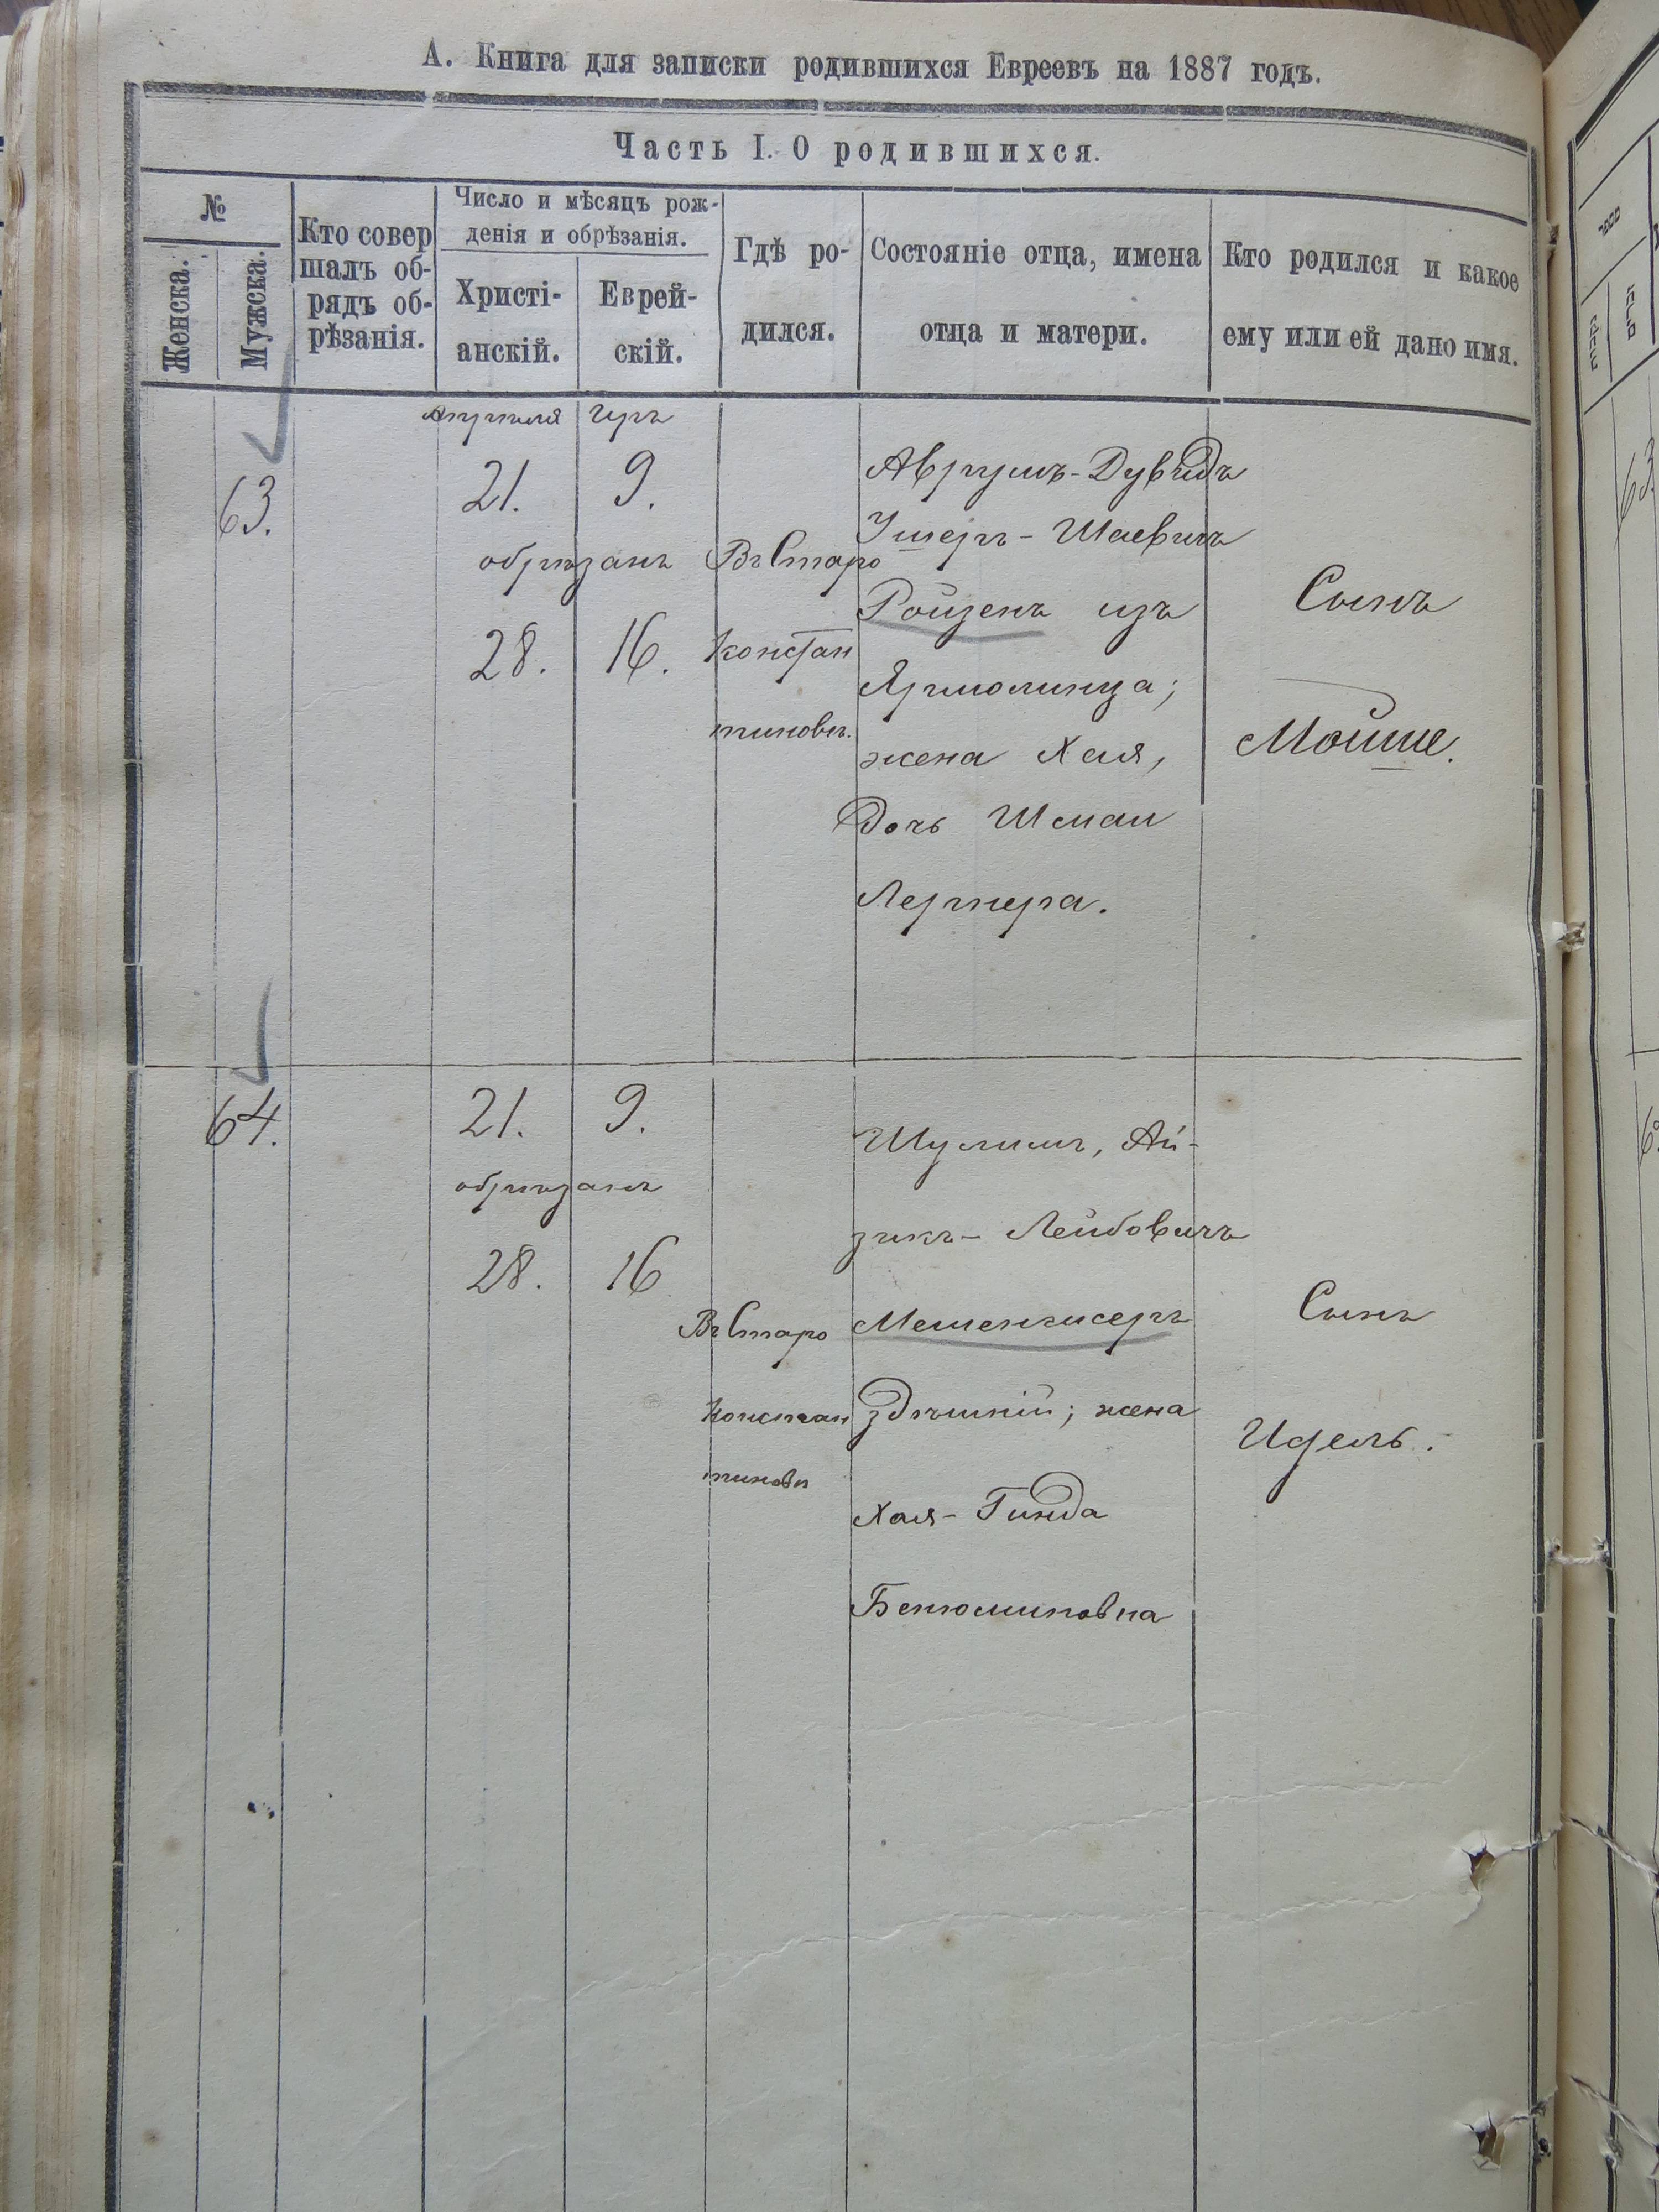 А. Книга для записки родившихся Евреевъ на 1887 годъ.
Часть I. О родившихся.
№
Женска.
Мужска.
Кто совер
шалъ об-
рядъ об-
рѣзанія.
Число и мѣсяцъ рож-
денія и обрѣзанія.
Христі-
анскій.
Еврей-
скій.
Гдѣ ро-
дился.
Состояніе отца, имена
отца и матери.
Кто родился и какое
ему или ей дано имя.
63.
Апрѣля Иръ
21. 9.
обрѣзанъ
28. 16.
Въ Старо
констан
тиновѣ.
Аврумъ-Дувидъ
Ушеръ-Шаевичъ
Ройзенъ изъ
Ярмолинца;
жена Хая,
дочь Шмаи
Лернера.
Сынъ
Мойше.
64.
21. 9.
обрѣзанъ
28. 16
Въ Старо
констан
тиновѣ
Шулимъ, Ай-
зикъ-Лейбовичъ
Мешенгисеръ
здѣшній; жена
Хая-Гинда
Бенюминовна
Сынъ
Идель.
63